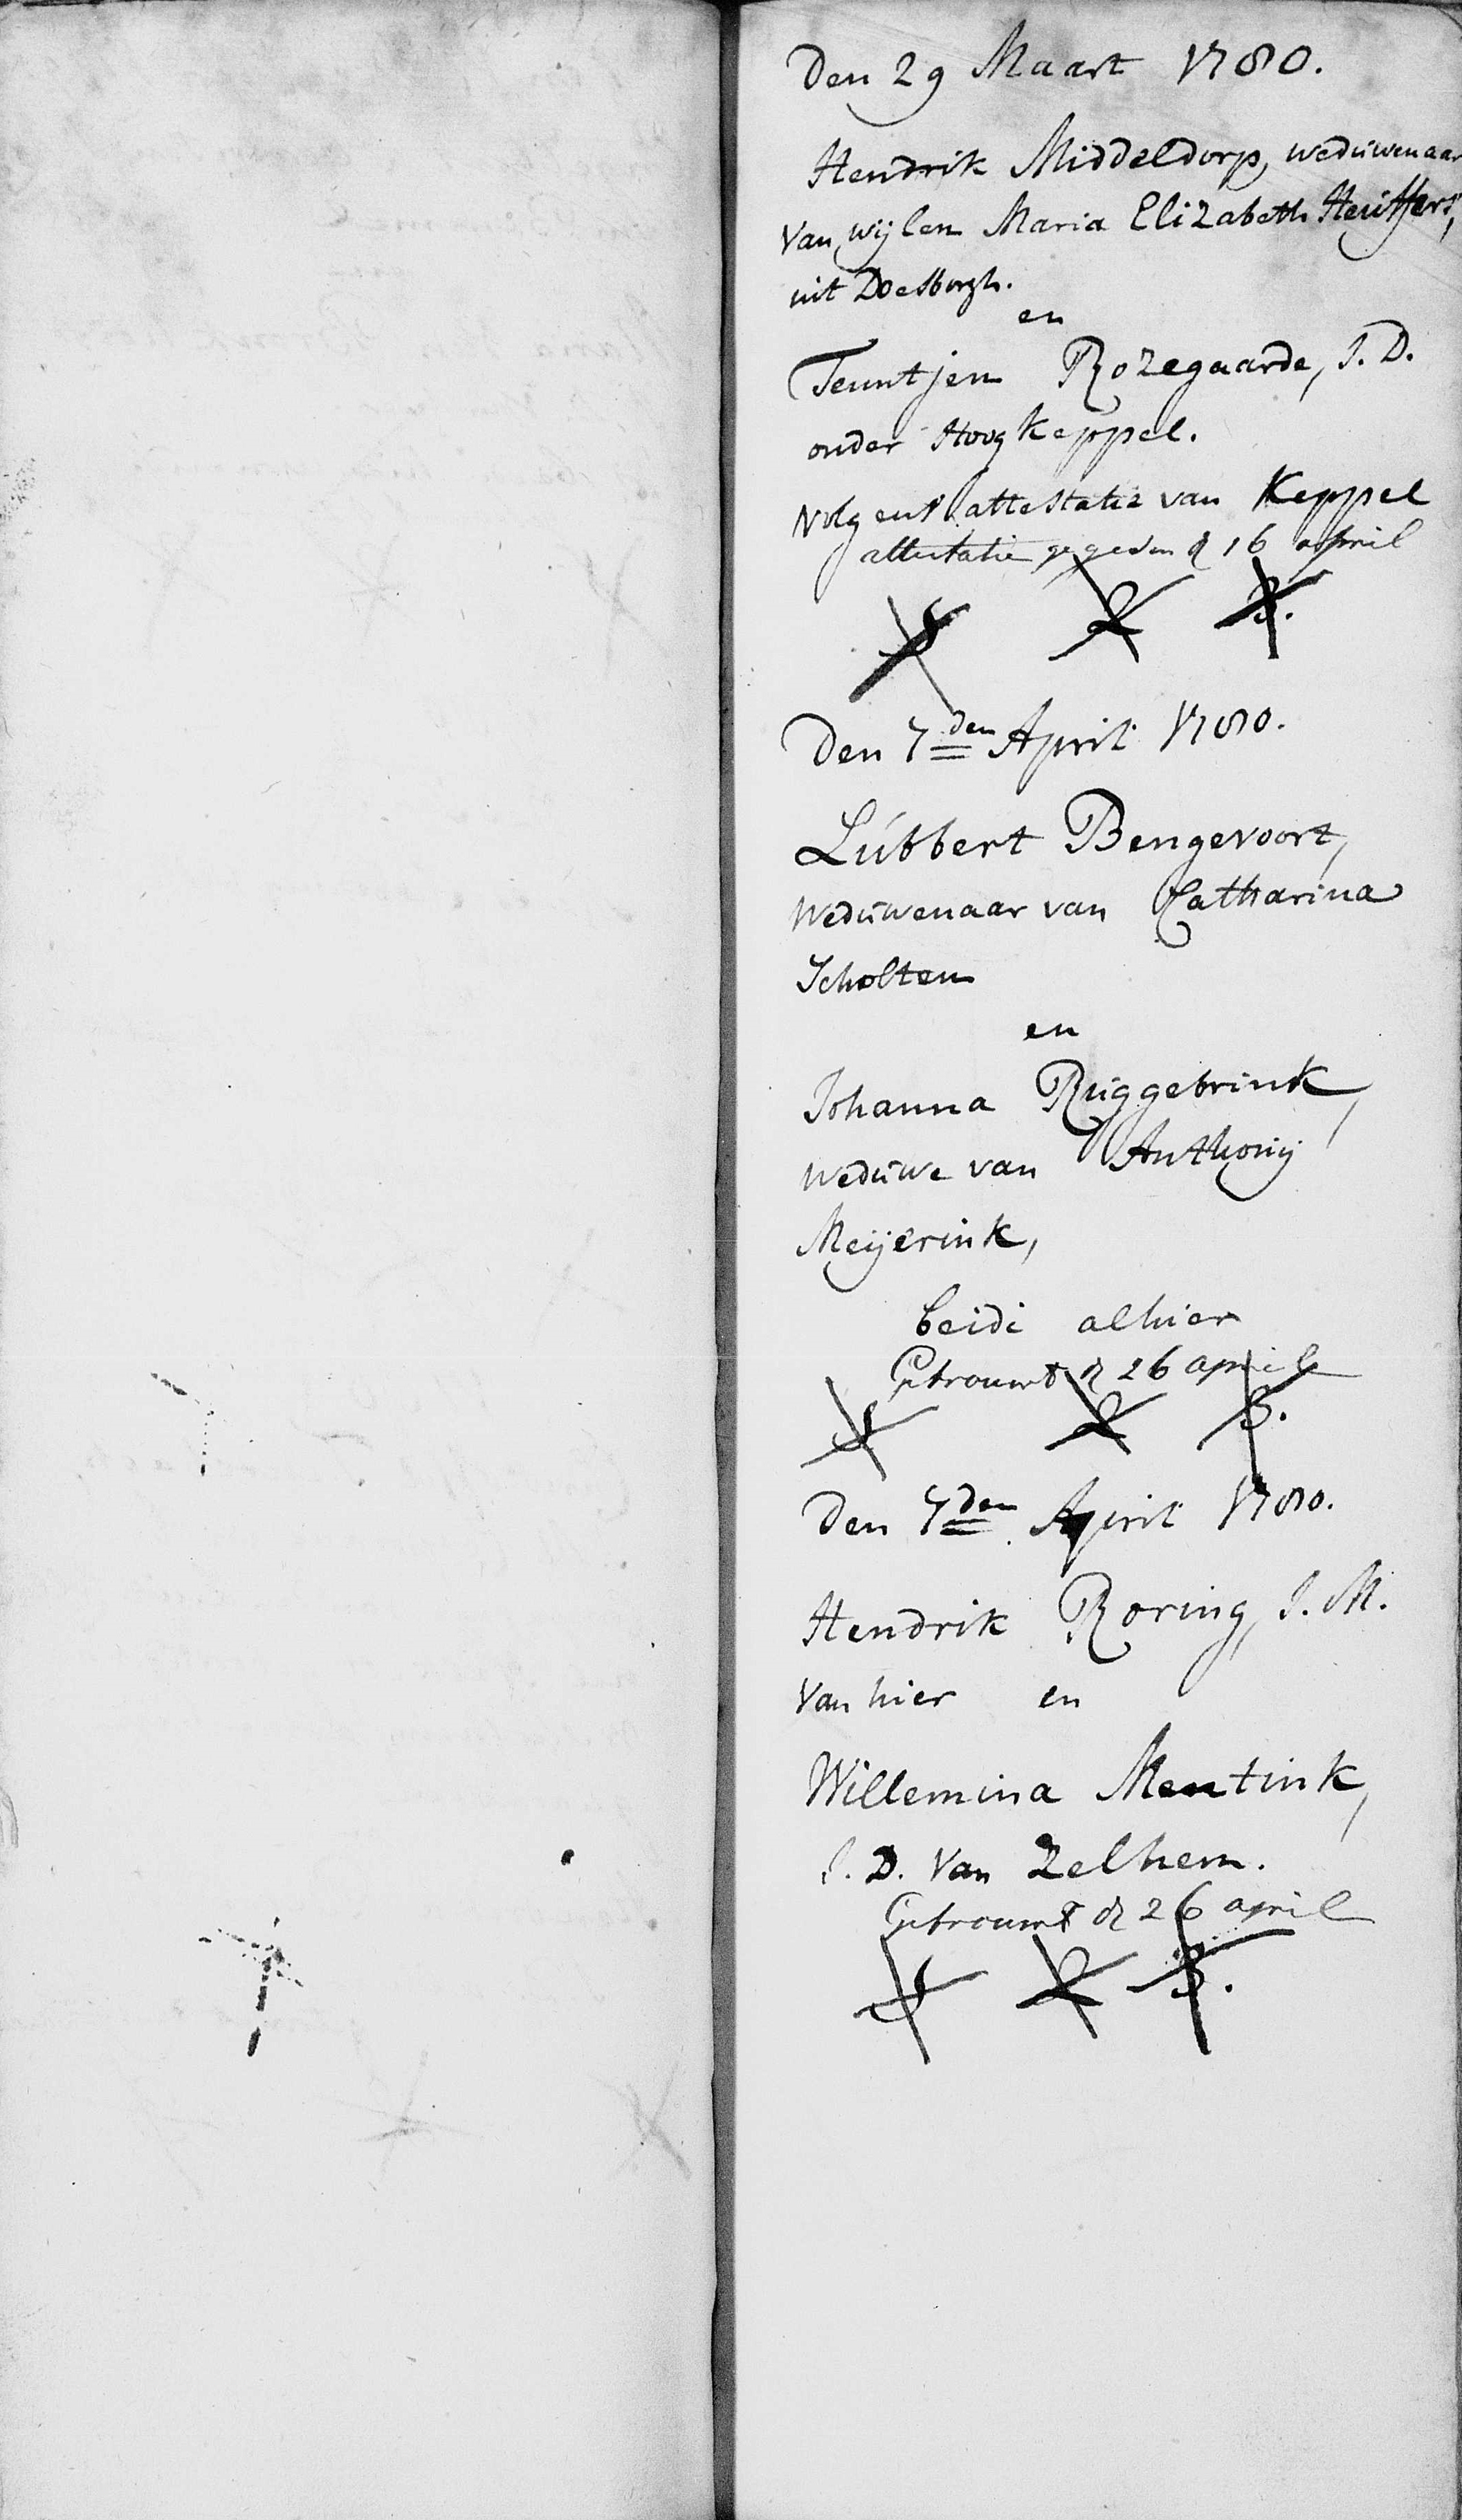 Den 29 Maart 1780.
Hendrik Middeldorp, weduwenaar
van wijlen Maria Elizabeth
uit Doesborgh.
en
Teuntjen Rozegaarde, J. D.
onder Hoog Keppel.
volgens attestatie van Keppel
attestatie gegeven d 16 april
1 2 3.
Den 7den April 1780.
Lúbbert Bengevoort,
Weduwenaar van Catharina
Scholten
en
Johanna Ruggebrink,
weduwe van Anthonij
Meijerink,
beide alhier
Getrouwt d 26 april
1 2 3.
Den 7den April 1780.
Hendrik Roring, J. M.
van hier en
Willemina Mentink,
J. D. van Zelhem.
Getrouwt d 26 april
1 2 3.